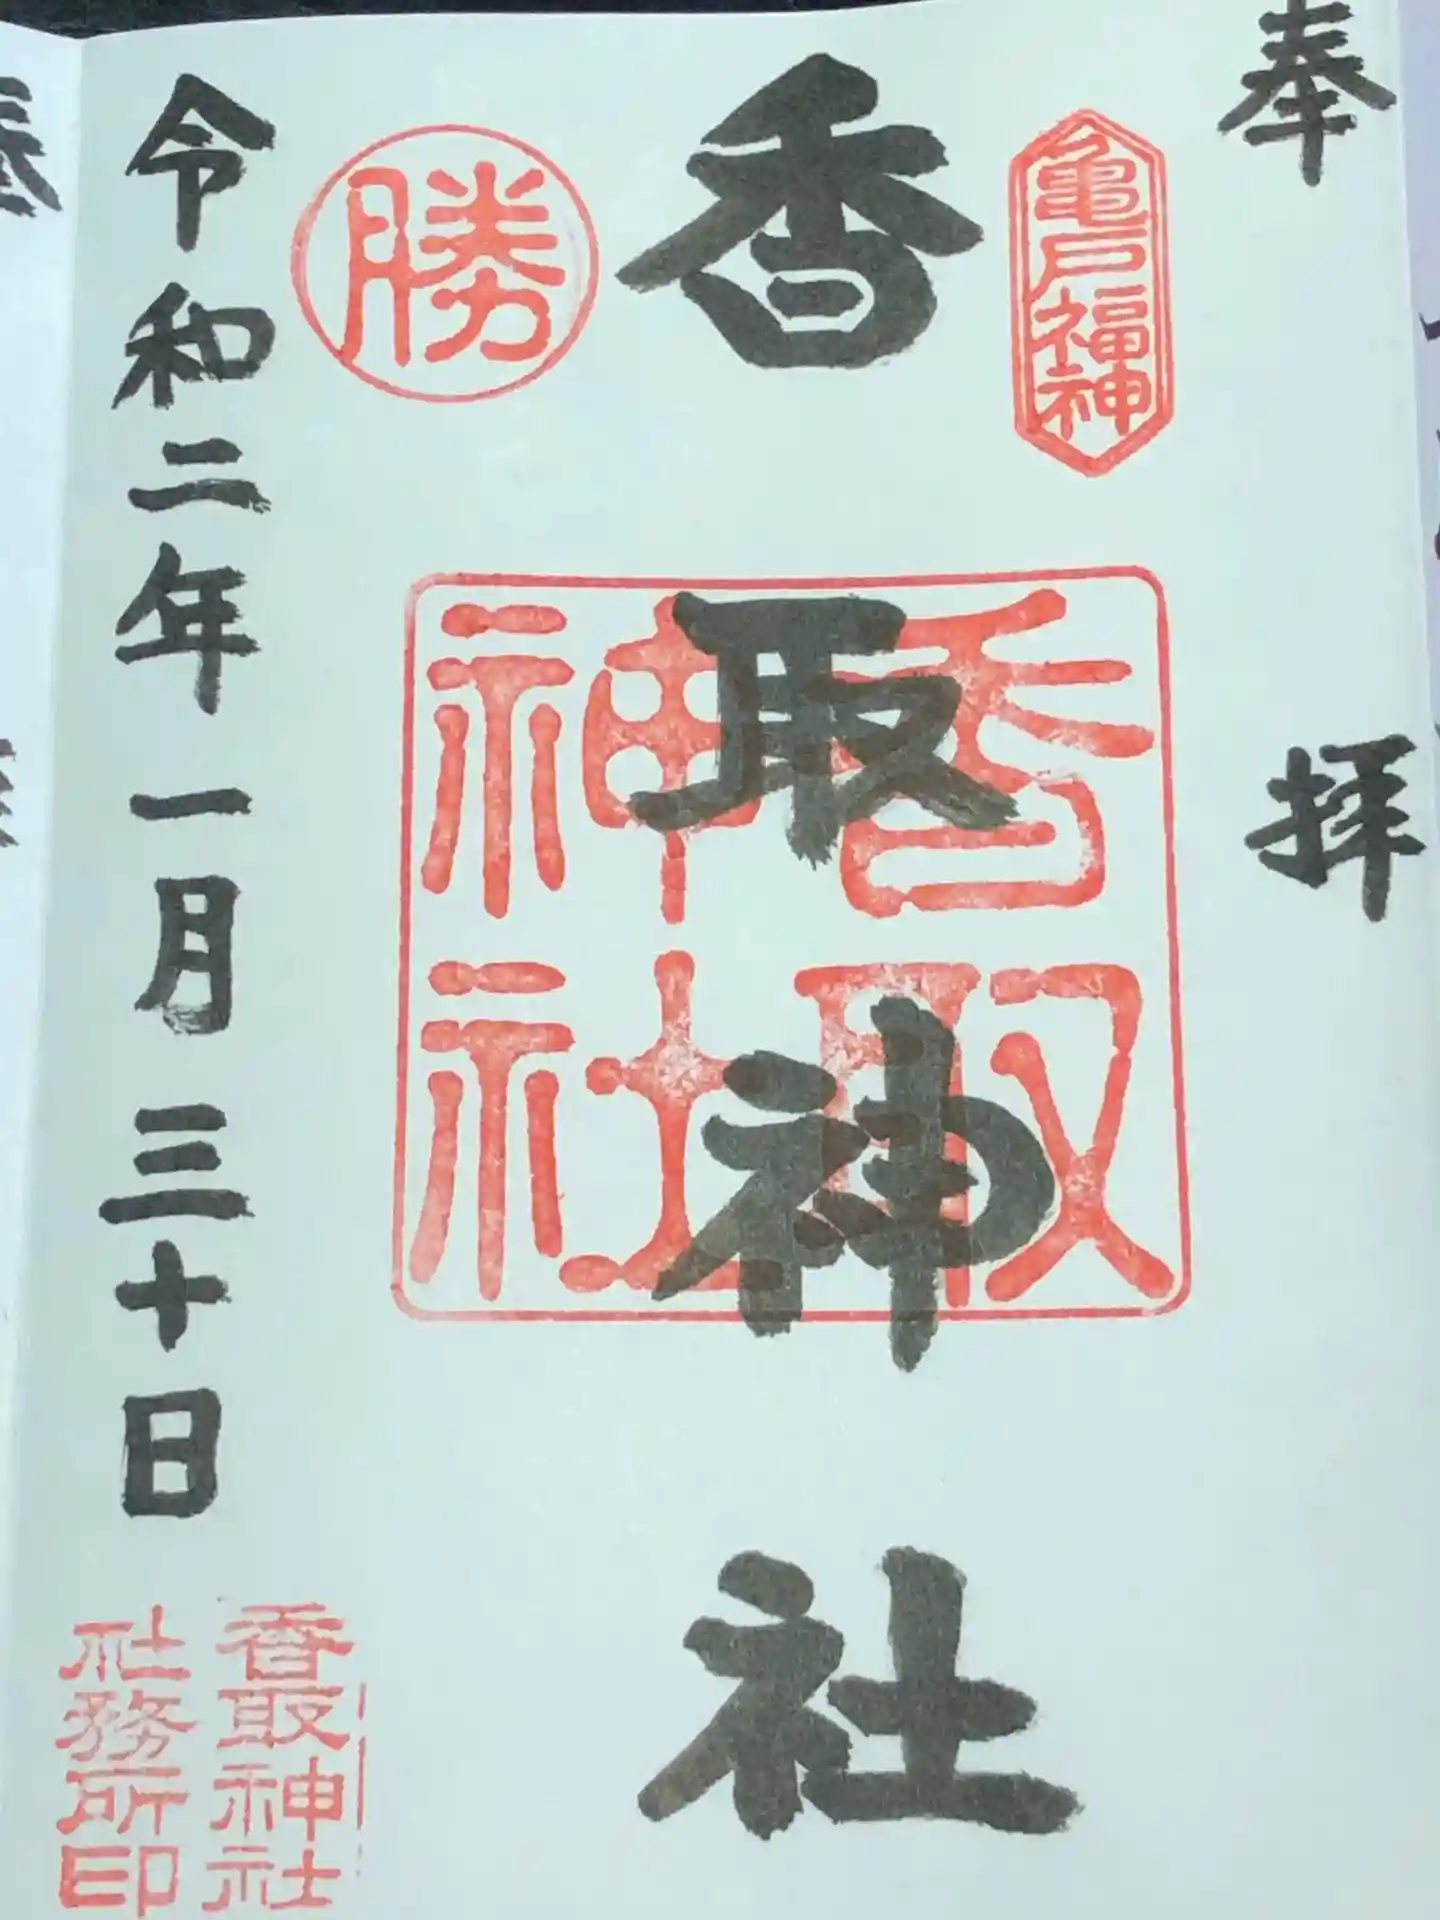 奉拝
亀戸福神
香取神社
香取神社
勝
令和二年一月三十日
香取神社
社務所印